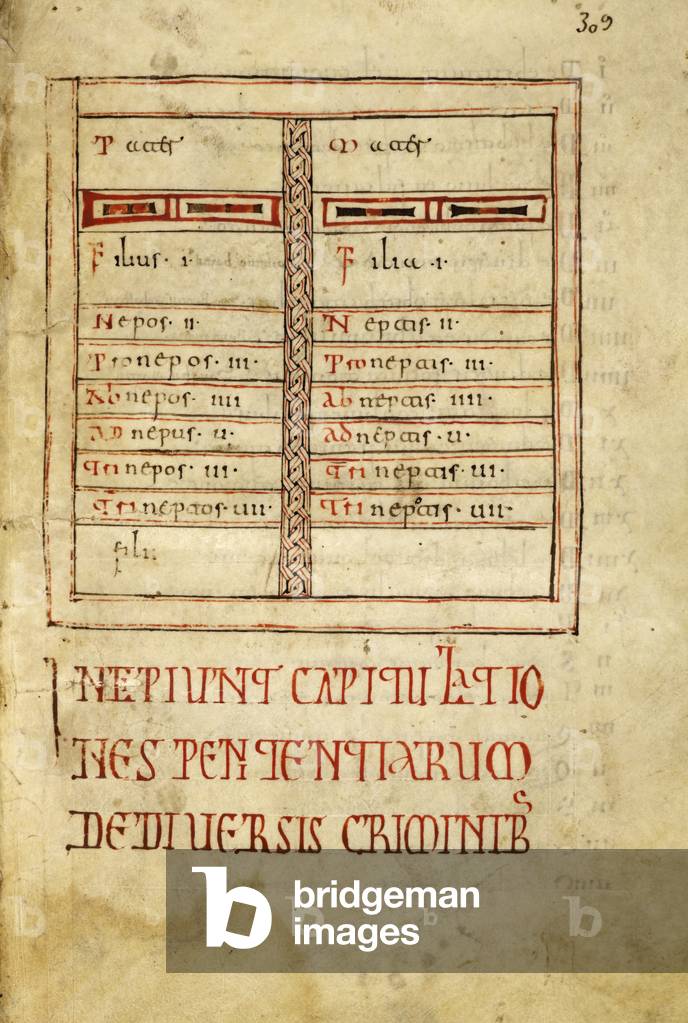 309
Pater Mater
Filius · i · Filia · i ·
Nepos · ii · Neptis · ii ·
Pronepos · iii · Proneptis · iii ·
Abnepos · iiii Abneptis · iiii ·
ADnepus · u · ADneptis · u ·
Trinepos · ui · Trineptis · ui ·
Trineptos · uii · Trinepotis · uii ·
INCIPIUNT CAPITULATIO
NES PENITENTIARUM
DE DIUERSIS CRIMINIBS
bridgeman
images